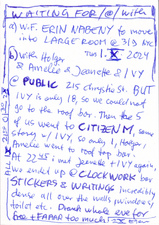 WAITING FOR/@/with
a) W.F. ERIN NABENY to move
into LARGE ROOM @ 313 NYC
TUE 1 X 2024
b) with Holger
& Amelie & Jeanette & IVY
@ PUBLIC 215 chrystie St. BUT
IVY is only 18, so we could not
go to the roof bar. Then the 5
of us went to CITIZEN M, same
story w/ IVY, so only I, Holger,
Amelie went to roof top bar.
At 22:25 I met Jeanette + IVY again,
we ended up @ CLOCKWORK bar
STICKERS & WRITINGS incredibly
dense all over the walls, windows,
toilet etc. Drank whole eve for
too much